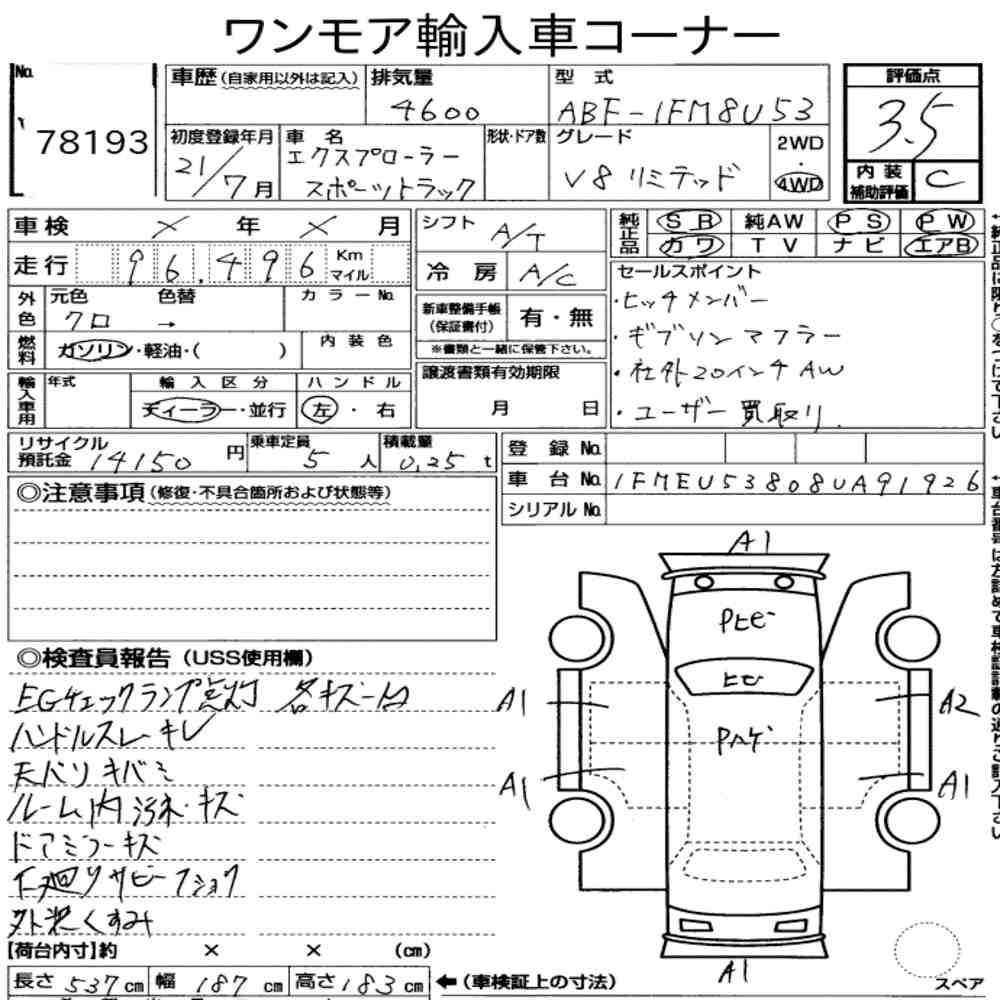 ワンモア輸入車コーナー
No. 78193
車歴(自家用以外は記入)
排気量 4600
型式 ABF-1FM8U53
評価点 3.5
初度登録年月 21/7月
車名 エクスプローラー スポーツトラック
形状・ドア数
グレード V8 リミテッド
2WD・4WD
内装補助評価 C
車検 × 年 × 月
シフト A/T
純正品 SR 純AW PS PW
カワ TV ナビ エアB
走行 96,496 Km マイル
冷房 A/C
セールスポイント
・ヒッチメンバー
・ギブソンマフラー
・社外20インチAW
・ユーザー買取り
外色 元色 クロ → 色替 カラーNo.
新車整備手帳(保証書付) 有・無
※書類と一緒に保管下さい。
燃料 ガソリン・軽油・( )
内装色
譲渡書類有効期限
月 日
輸入車用 年式 輸入区分 ハンドル
ディーラー・並行 左・右
リサイクル預託金 14150円
乗車定員 5人
積載量 0.25t
登録No.
車台No. 1FMEU53808UA91926
シリアルNo.
◎注意事項(修復・不具合箇所および状態等)
◎検査員報告(USS使用欄)
EGチェックランプ点灯 各キズ一凹
ハンドルスレ・キレ
天バリキバミ
ルーム内汚れ・キズ
ドアミラーキズ
下廻りサビ・フショク
外装くすみ
A1
Pヒビ
ヒビ
Pハゲ
A1
A2
A1
A1
A1
【荷台内寸】約 × × (cm)
長さ 537cm 幅 187cm 高さ 183cm ←(車検証上の寸法)
スペア